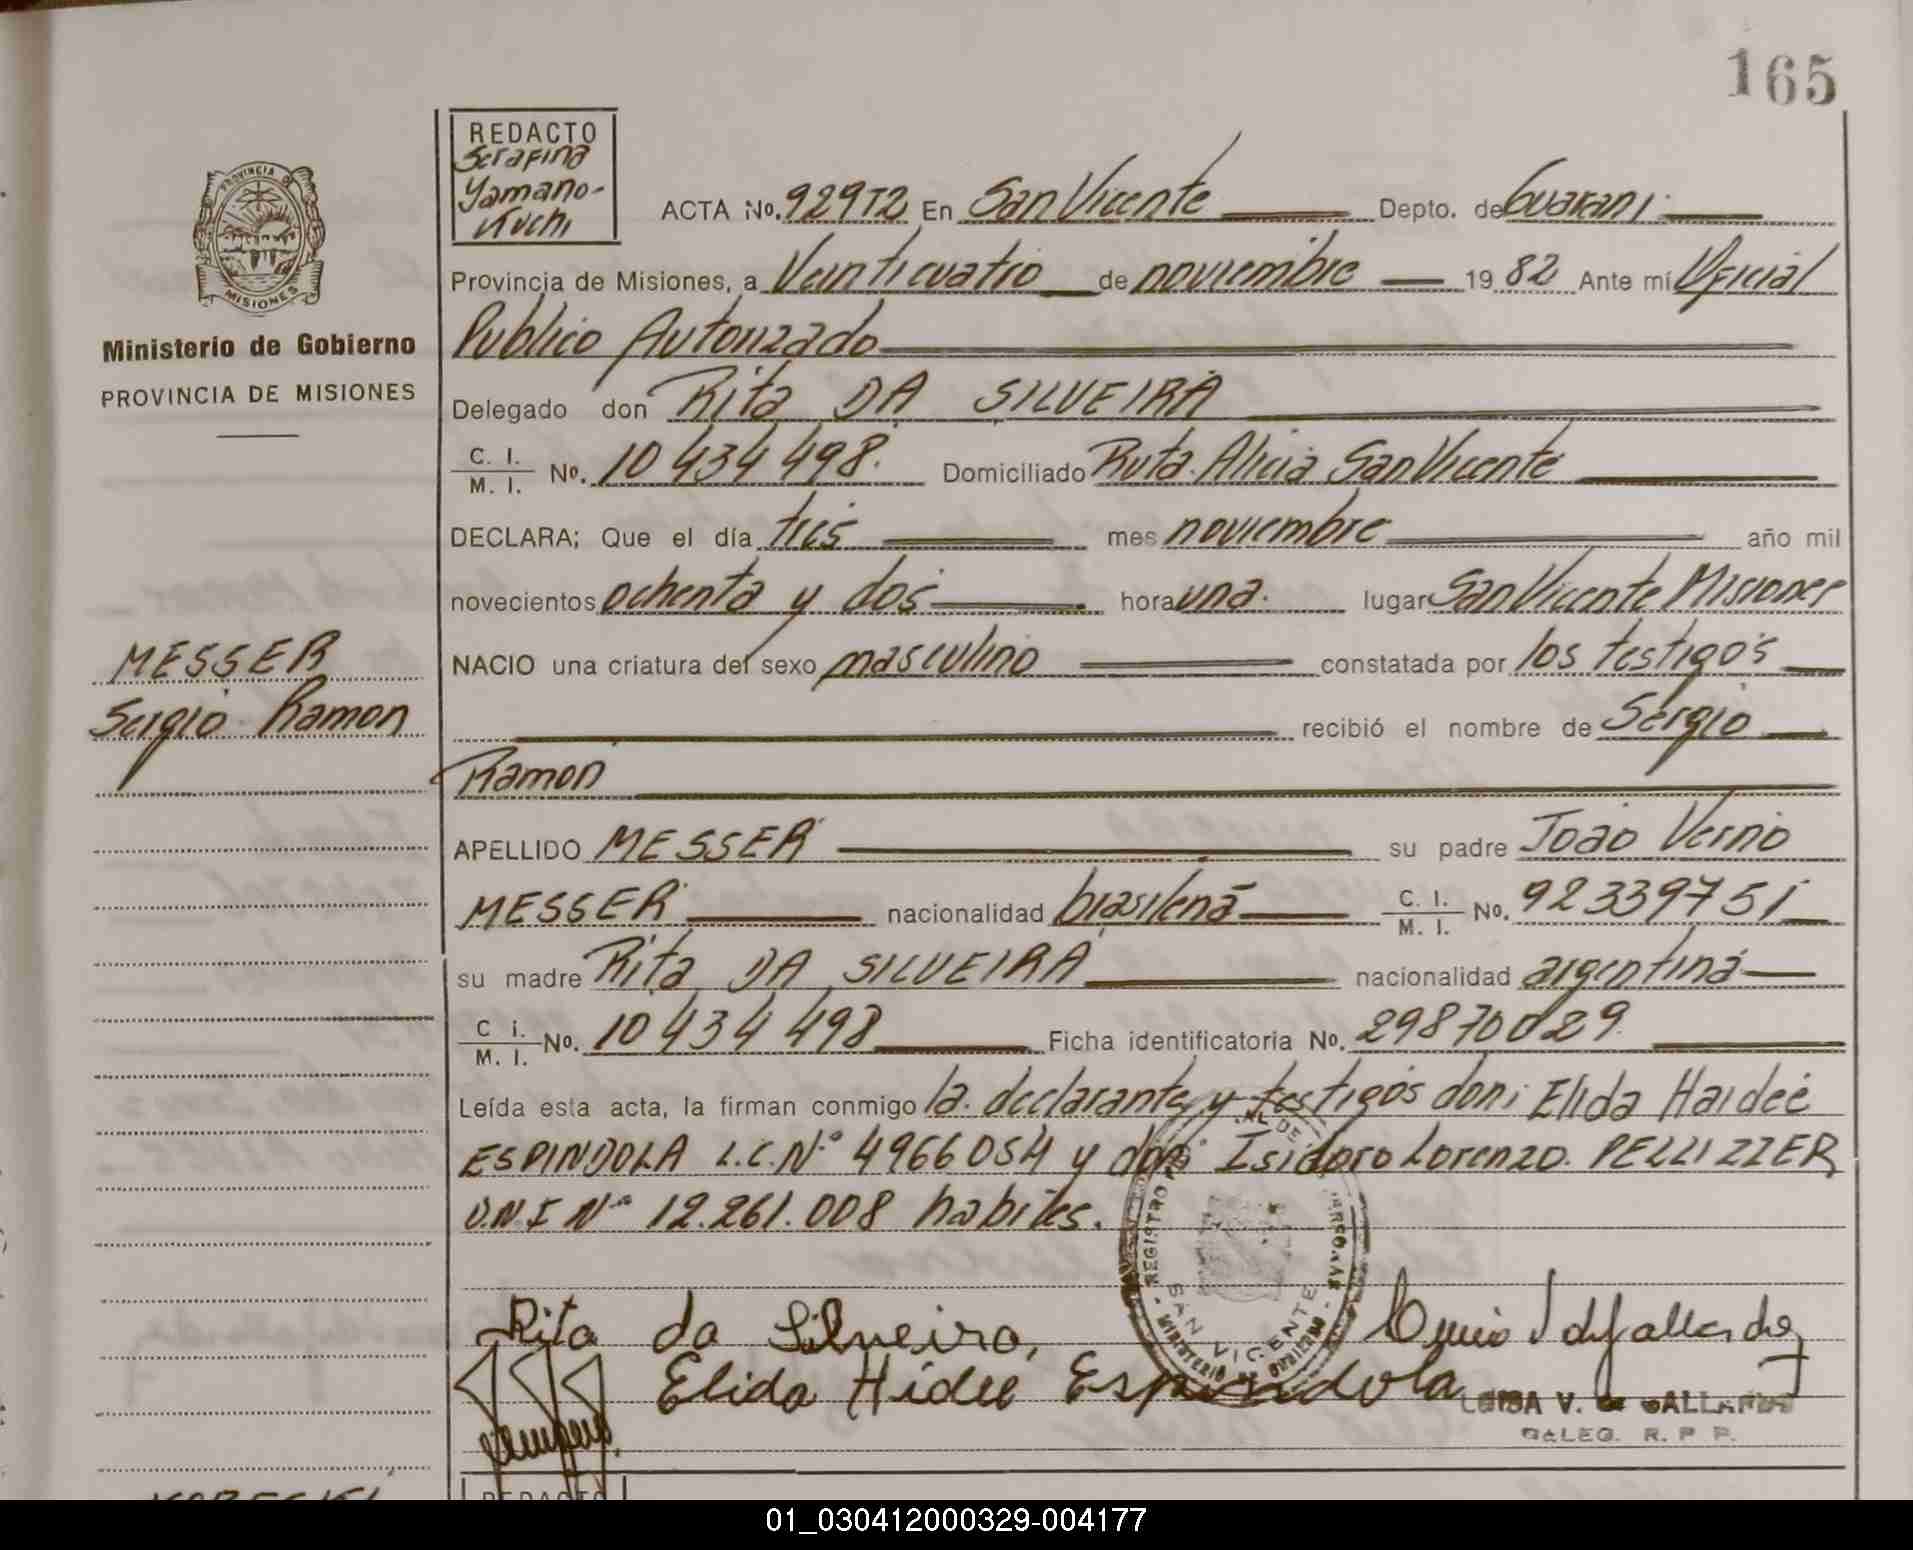 165
REDACTO
Serafina
Yamano-
Kuchi
PROVINCIA DE
MISIONES
Ministerio de Gobierno
PROVINCIA DE MISIONES
ACTA No. 929T2 En San Vicente Depto. de Guarani
Provincia de Misiones, a Veinticuatro de noviembre 19 82 Ante mí Oficial
Publico Autorizado
Delegado don Rita DA SILVEIRA
C. I. / M. I. No. 10 434 498. Domiciliado Ruta Alicia San Vicente
DECLARA; Que el día tres mes noviembre año mil
novecientos ochenta y dos hora una. lugar San Vicente Misiones
NACIO una criatura del sexo masculino constatada por los testigos
recibió el nombre de Sergio
Ramon
MESSER
Sergio Ramon
APELLIDO MESSER su padre Joao Verno
MESSER nacionalidad brasileña C. I. / M. I. No. 92339751
su madre Rita DA SILVEIRA nacionalidad argentina
C i. / M. I. No. 10 434 498 Ficha identificatoria No. 29870029
Leída esta acta, la firman conmigo la declarante y testigos don: Elida Haideé
ESPINDOLA L.C.Nº 4966054 y don Isidoro Lorenzo PELLIZZER
D.N.I Nº 12.261.008 habiles.
REGISTRO
SAN VICENTE
MINISTERIO DE GOBIERNO
Rita da Silveira,
Elida Hidee Espindola
LUISA V. de GALLARDO
DELEG. R. P P.
REDACTO
01_030412000329-004177